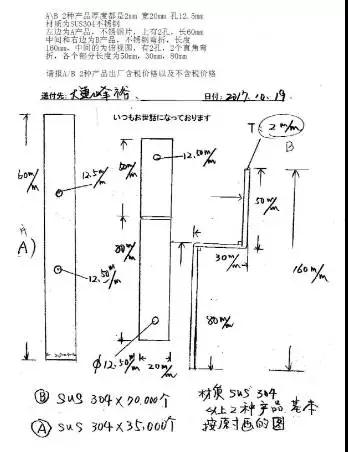 A\B 2种产品厚度都是2mm 宽20mm 孔12.5mm
材质为SUS304不锈钢
左边为A产品，不锈钢片，上有2孔，长60mm
中间和右边为B产品，不锈钢弯折，长度
160mm，中间的为俯视图，有2孔，2个直角弯
折，各个部分长度为50mm，30mm，80mm
请报A/B 2种产品出厂含税价格以及不含税价格
送付先:
日付: 2017.10.19.
いつもお世話になっております
T 2m/m
B
60m/m
12.5m/m
12.50m/m
A)
50m/m
12.50m/m
80m/m
φ12.50m/m
20m/m
50m/m
30m/m
80m/m
160m/m
Ⓑ SUS 304 × 70.000个
Ⓐ SUS 304 × 35,000个
材质 SUS 304
以上2种产品 基本
按原寸画的图